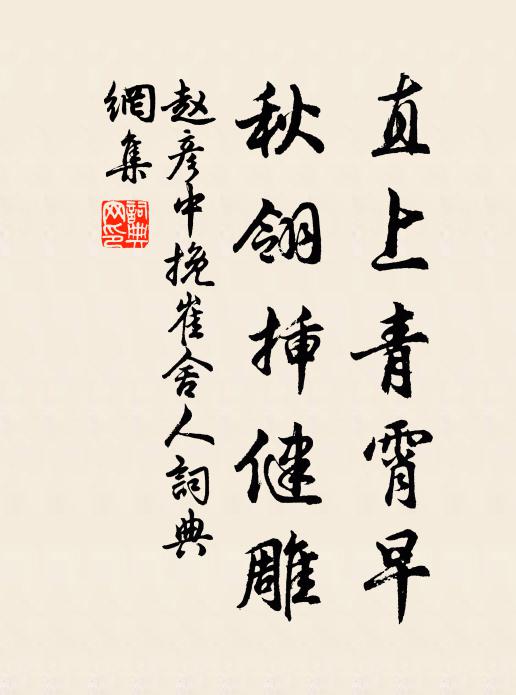 直上青霄早
秋翎插健雕
赵彦中挽崔舍人詞典
網集
詞典
网印